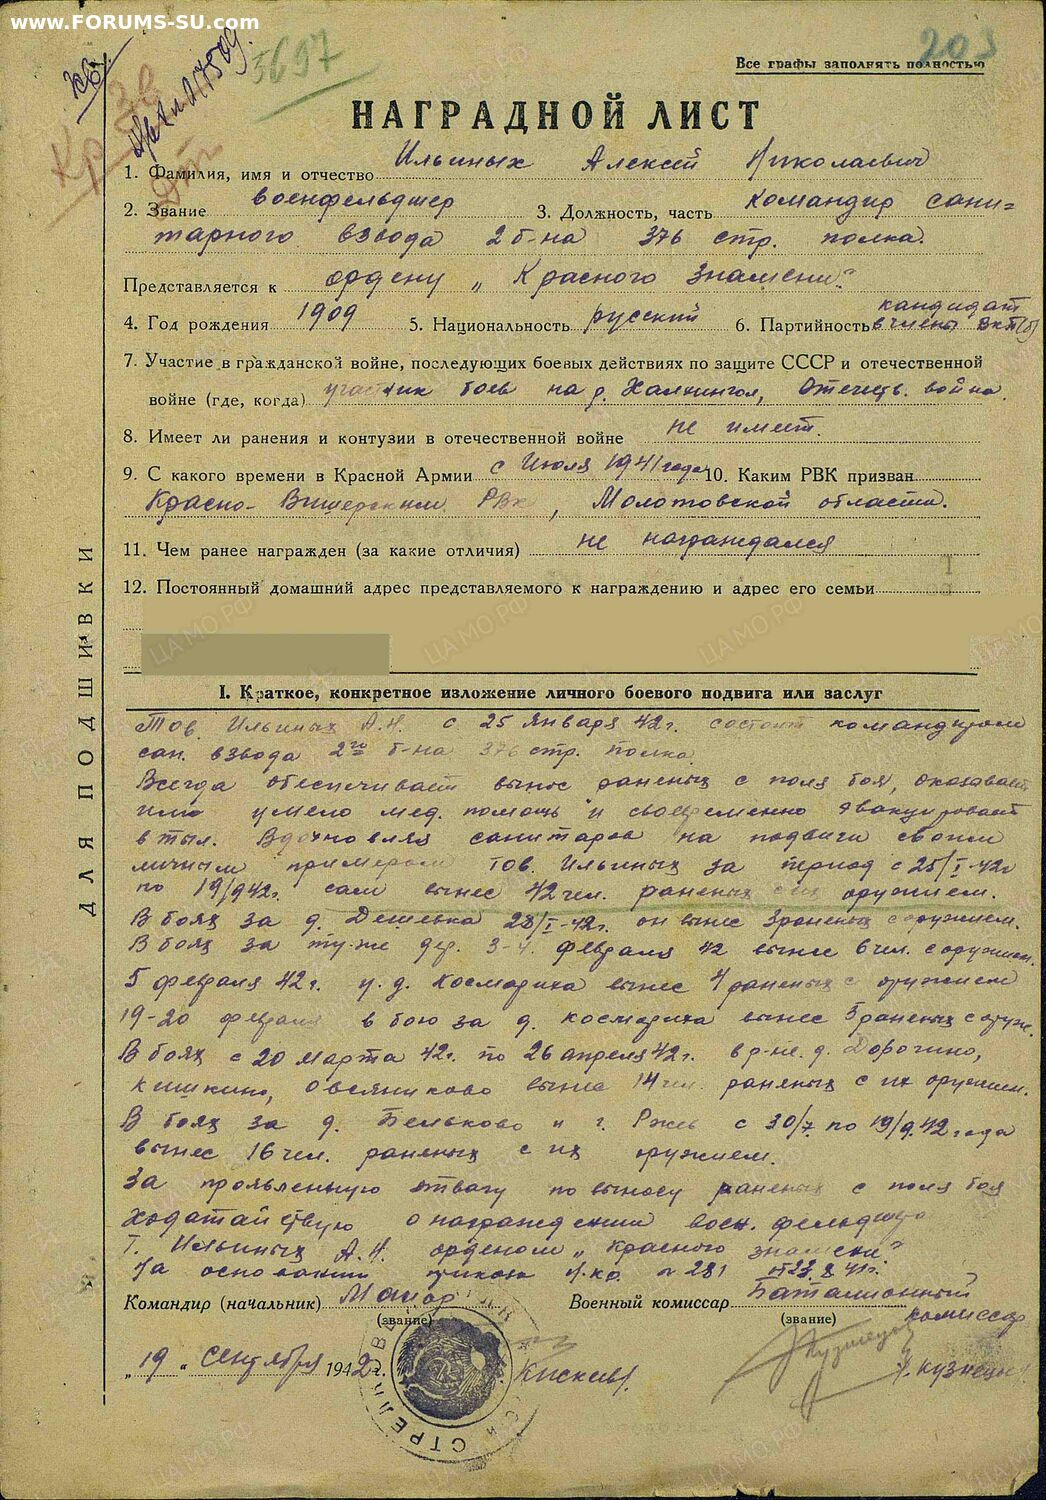 www.FORUMS-SU.com
5697
203
Все графы заполнять полностью
НАГРАДНОЙ ЛИСТ
1. Фамилия, имя и отчество Ильиных Алексей Николаевич
2. Звание военфельдшер 3. Должность, часть командир сани=
тарного взвода 2 б-на 376 стр. полка.
Представляется к ордену „Красного Знамени"
4. Год рождения 1909 5. Национальность русский 6. Партийность кандидат
в члены ВКП(б)
7. Участие в гражданской войне, последующих боевых действиях по защите СССР и отечественной
войне (где, когда) участник боев на р. Халкингол, Отечеств. война.
8. Имеет ли ранения и контузии в отечественной войне не имеет.
9. С какого времени в Красной Армии с Июля 1941 года 10. Каким РВК призван
Красно-Вишерским РВК, Молотовской области.
11. Чем ранее награжден (за какие отличия) не награждался
12. Постоянный домашний адрес представляемого к награждению и адрес его семьи
ДЛЯ ПОДШИВКИ
I. Краткое, конкретное изложение личного боевого подвига или заслуг
Тов. Ильиных А.Н. с 25 января 42 г. состоит командиром
сан. взвода 2го б-на 376 стр. полка.
Всегда обеспечивает вынос раненых с поля боя, оказывает
им умело мед. помощь и своевременно эвакуировает
в тыл. Вдохновляя санитаров на подвиги своим
личным примером тов. Ильиных за период с 25/I-42г
по 19/9 42г. сам вынес 42 чел. раненых с их оружием.
В боях за д. Дешевка 28/I-42г. он вынес 3 раненых с оружием.
В боях за ту-же дер. 3-4 февраля 42 вынес 6 чел. с оружием.
5 февраля 42 г. у д. Космариха вынес 4 раненых с оружием
19-20 февраля в бою за д. Космариха вынес 5 раненых с оруж.
В боях с 20 марта 42г. по 26 апреля 42 г. в р-не д. Дорочино,
Кишкино, Овсянниково вынес 14 чел. раненых с их оружием.
В боях за д. Бельково и г. Ржев с 30/7. по 19/9.42 года
вынес 16 чел. раненых с их оружием.
За проявленную отвагу по выносу раненых с поля боя
Ходатайствую о награждении воен. фельдшера
т. Ильиных А.Н. орденом „Красного знамени"
На основании приказа н.ко. № 281 от 23.8.41г.
Командир (начальник) Майор Военный комиссар Батальонный
(звание) (звание) комиссар
„19" Сентября 1942 г. Кискин /Кузнецов/